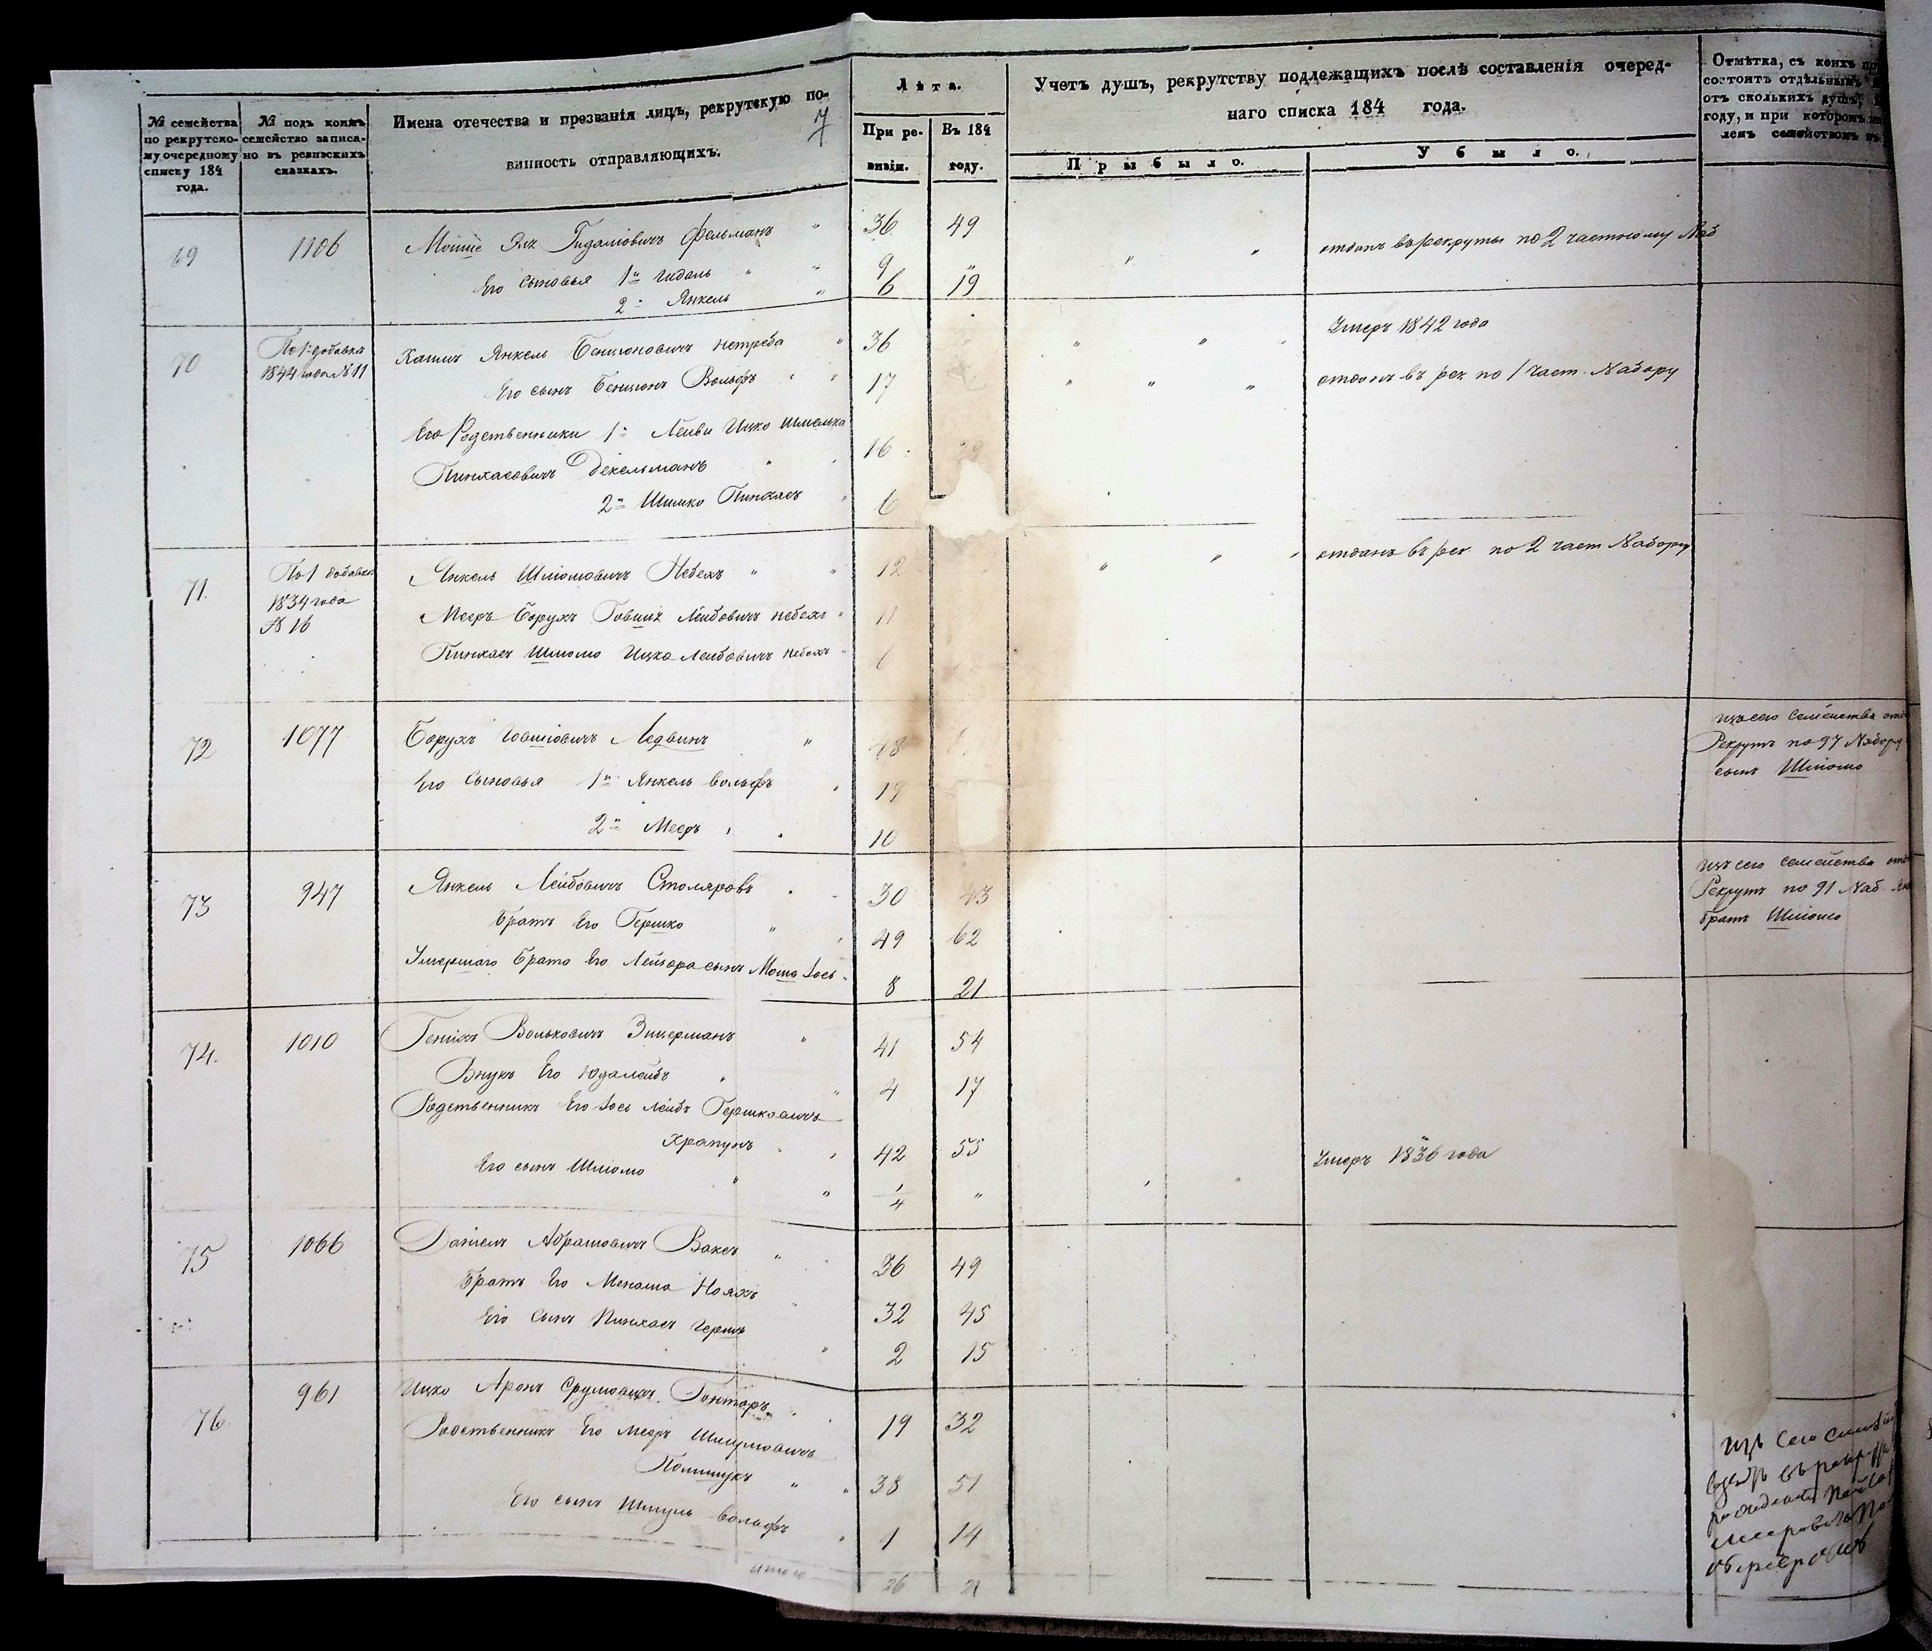 № семейства по рекрутско-му очередному списку 184 года.
№ подъ коимъ семейство записа-но въ ревизскихъ сказкахъ.
Имена отечества и прозванія лицъ, рекрутскую по-
винность отправляющихъ.
7
Лѣта.
При ре-визіи.
Въ 184 году.
Учетъ душъ, рекрутству подлежащихъ послѣ составленія очеред-
наго списка 184 года.
Прибыло.
Убыло.
Отмѣтка, съ коихъ
состоитъ отдѣльнымъ
отъ сколькихъ душъ,
году, и при которомъ
лемъ семействомъ въ
69 1106 Гидаліовичъ Фельманъ " 36 49 отданъ въ рекруты по 2 частному Наб
Его сыновья 1й Гидаль " " 9 "
2й Янкель " 6 19
70 По 1 добавка Хаимъ Янкель Бенціоновичъ Нетреба " 36 " " Умеръ 1842 года
1844 года №11 Его сынъ Бенціонъ Вольфъ " " 17 " " " отданъ въ рек по 1 част. Набору
Его Родственники 1й Лейви Ицко Шмелька
Пинхасовичъ Декельманъ " 16
2й Шимко Пинхасъ 6
71. По 1 добавки Янкель Шліомовичъ Небехъ " " 12 " " " отданъ въ рек по 2 част Набору
1834 года Мееръ Борухъ Лейбовичъ Небехъ " 11
№ 16 Пинхасъ Шліомо Ицко Лейбовичъ Небехъ "
72 1077 Борухъ Іовшіовичъ Ледвинъ " 48 изъ сего Семейства
Рекрутъ по 97 Набору
сынъ Шліомо
Его Сыновья 1й Янкель Вольфъ 19
2й Мееръ 10
73 947 Янкель Лейбовичъ Столяровъ 30 43 изъ сего семейства
Рекрутъ по 91 Наб
братъ Шліомо
Братъ Его Гершко " 49 62
Умершаго Брата Его Лейзора сынъ Моша Іось 8 21
74. 1010 Генихъ Вольковичъ Зицерманъ " 41 54
Внукъ Его Юдалейбъ 4 17
Родственникъ Его Іось Лейбъ Гершковичъ
Храпунъ 42 55
Его сынъ Шліомо " " 1/4 " Умеръ 1836 года
75 1066 Даніелъ Абрамовичъ Ваксъ " 36 49
Братъ Его Менаша Ноахъ 32 45
Его Сынъ Пинхасъ Гершъ " 2 15
76 961 Ицко Аронъ Срулювичъ Гонтаръ 19 32
Родственникъ Его Мееръ Шмулювичъ
Полищукъ " " 38 51
Его сынъ Шмуль Вольфъ " 1 14
изъ Сего
итого 26 21